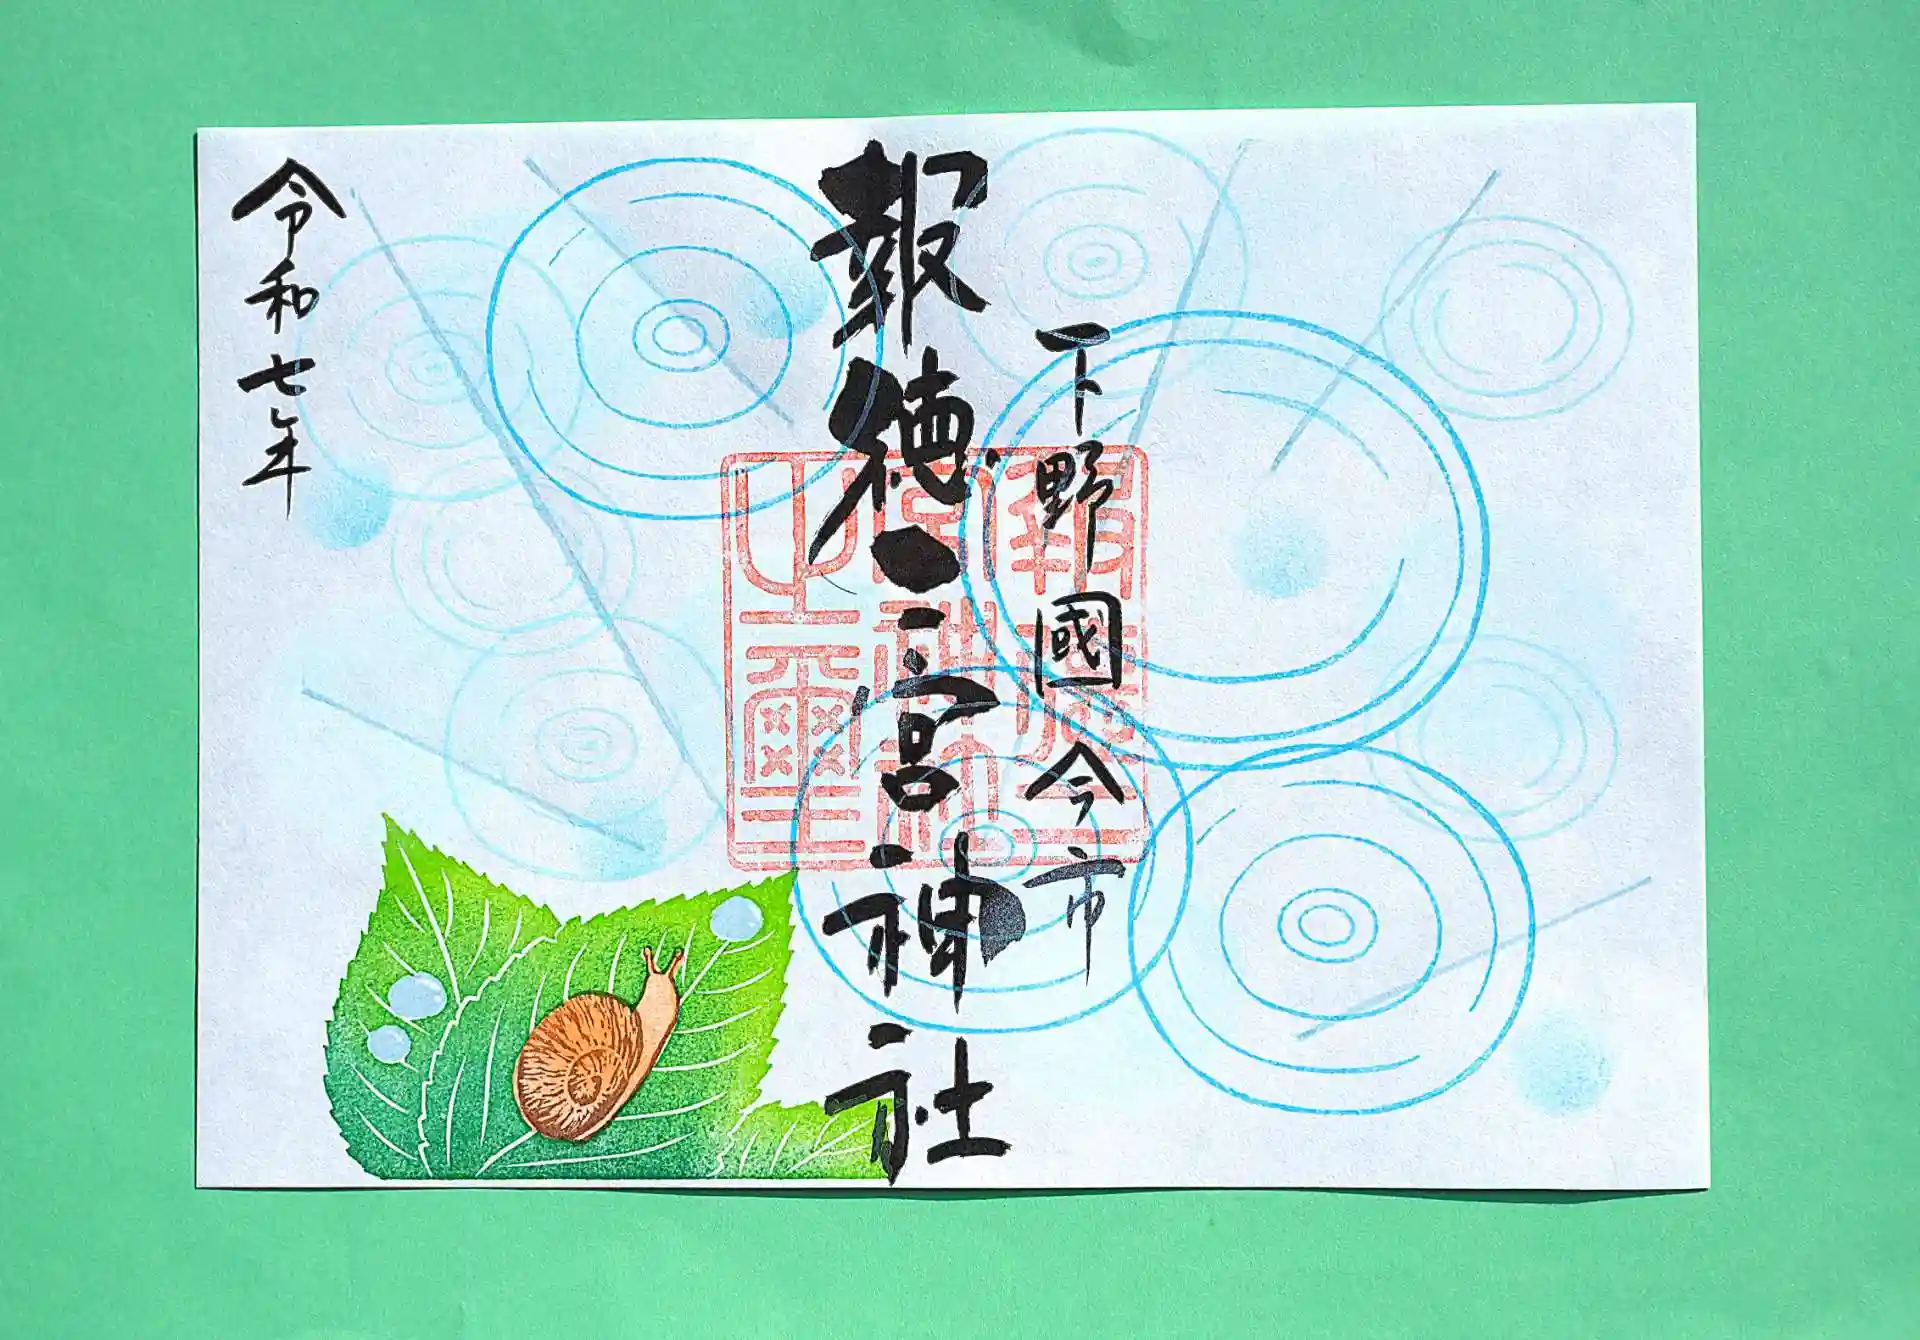 下野國今市
報徳二宮神社
令和七年
報徳二宮神社之璽